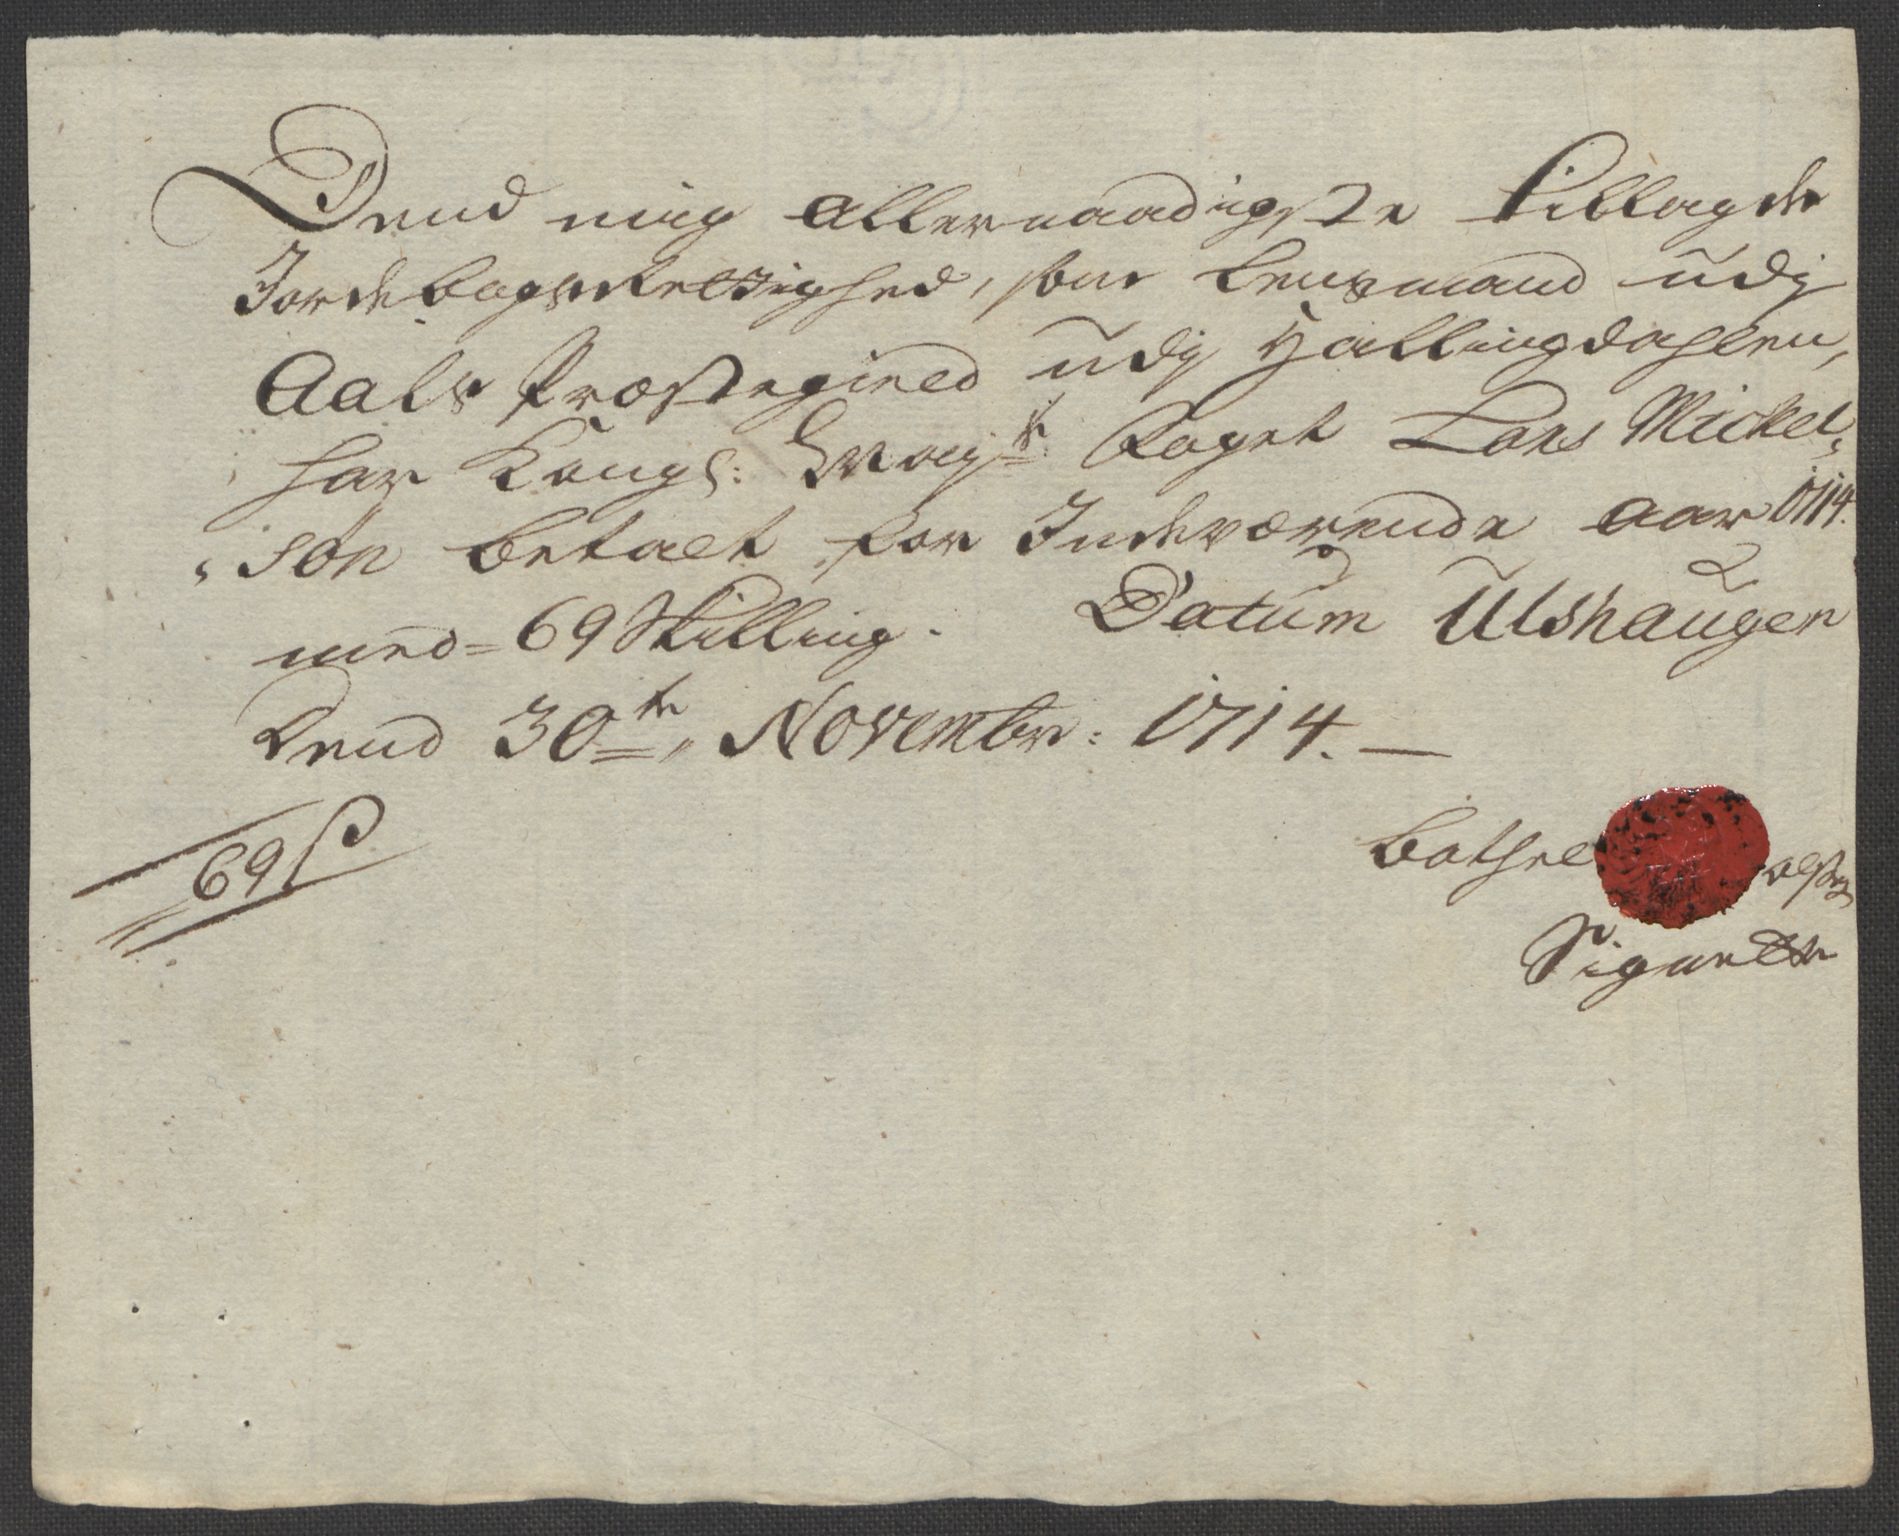 Dend mig Allernaadigste tillagde
Jordebogs Rettighed, som Lensmand udj
Aals Præstegield udj Hallingdahlen,
har Kongl: Mayts Foget Lars Mickel„
„søn betalt for Indeværende Aar 1714.
med = 69 Skilling. Datum Ulshaugen
Dend 30te, Novembr: 1714. —
69 ß
Signete